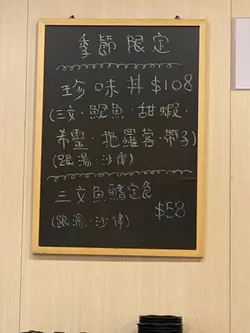 季節限定
珍味丼$108
(三文·鯤魚·甜蝦·
希靈·拖羅蓉·帶子)
(跟湯·沙律)
三文魚鰭定食
(跟湯·沙律) $58